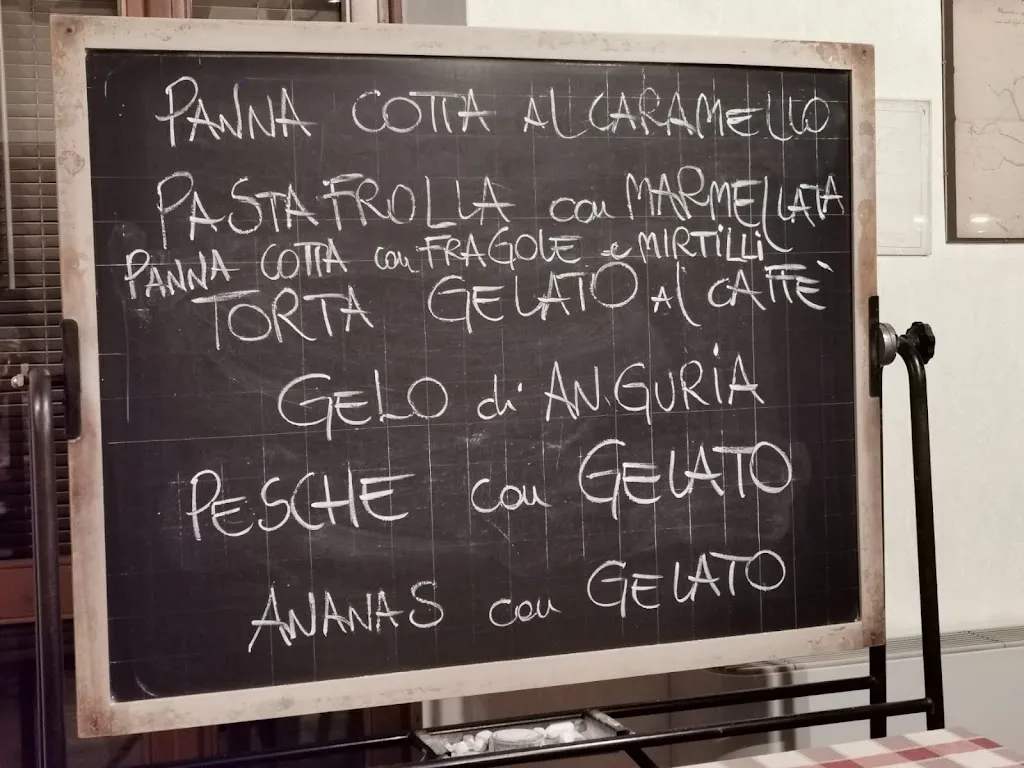 PANNA COTTA AL CARAMELLO
PASTA FROLLA con MARMELLATA
PANNA COTTA con FRAGOLE e MIRTILLI
TORTA GELATO al CAFFÈ
GELO di ANGURIA
PESCHE con GELATO
ANANAS con GELATO